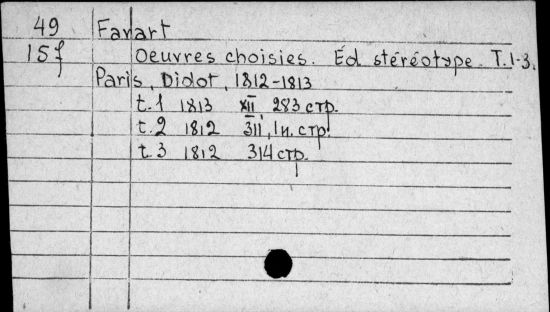 49 Favart
15f Oeuvres choisies. Éd stéréotype. T.1-3.
Paris, Didot, 1812-1813
t.1 1813 XII, 283 стр.
t.2 1812 311, 1н. стр.
t.3 1812 314 стр.